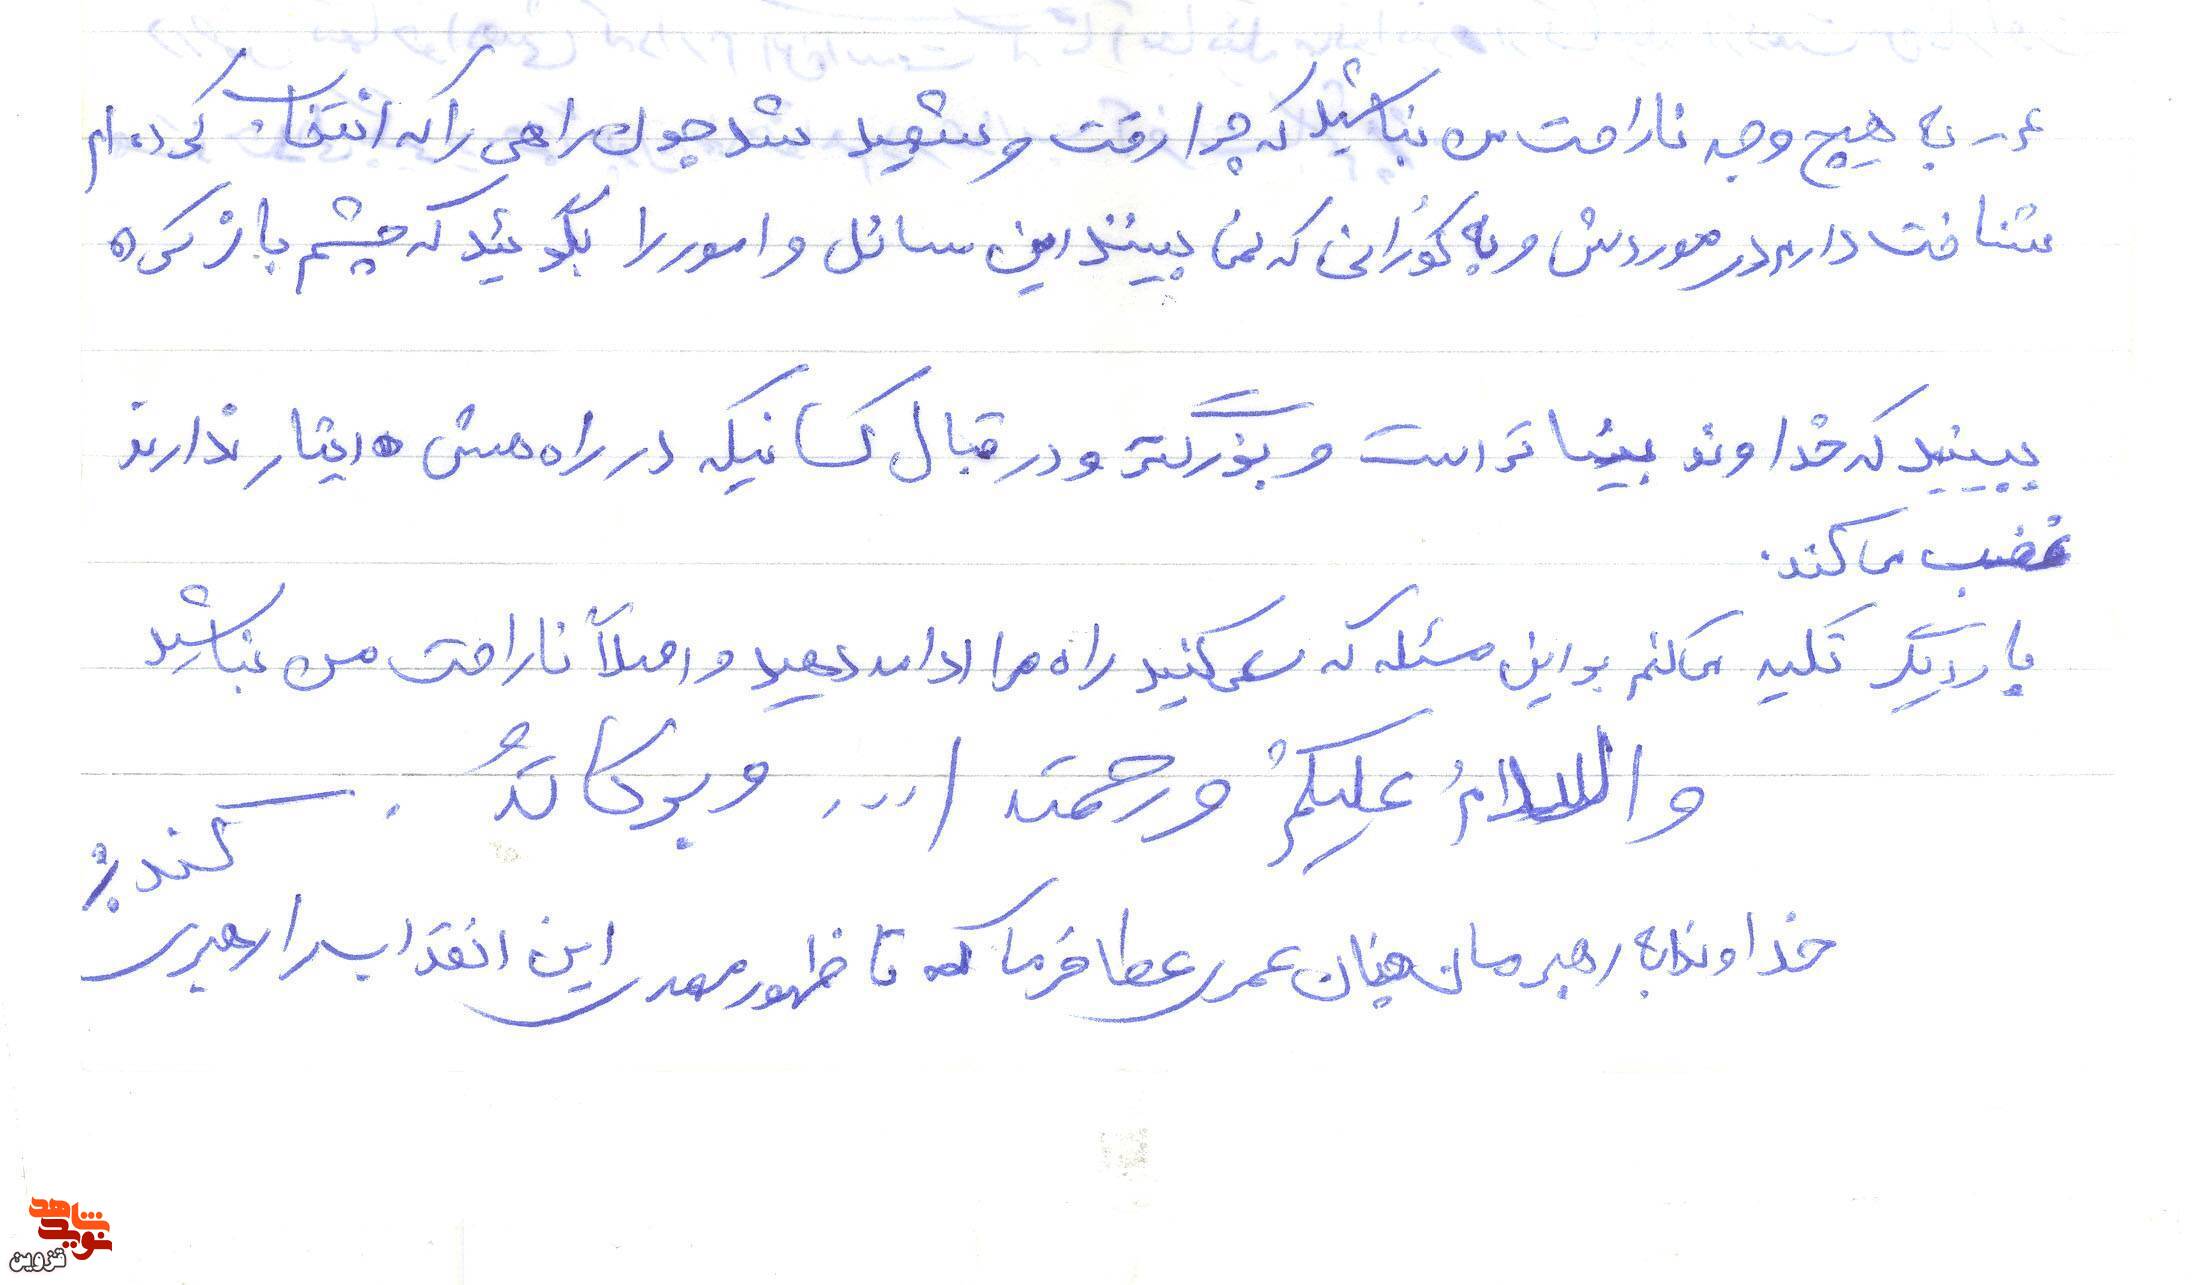 به هیچ وجه ناراحت من نباشید که چرا رفت و شهید شد چون راهی را که انتخاب کرده ام
شناخت دارم در موردش و به کورانی که نمی بینند این مسائل و امور را بگوئید که چشم باز کن
ببینید که خداوند بینا تر است و بزرگتر و در قبال کسانیکه در راهش ایثار ندارند
غضب می کند.
بار دیگر تکیه می کنم بر این مسئله که سعی کنید راه مرا ادامه دهید و اصلاً ناراحت من نباشید
والسلامُ علیکمْ و رحمته ا... و برکاتهُ .
خداوندا به رهبرمان چنان عمری عطا فرما که تا ظهور مهدی این انقلاب را رهبری
کند
شاهد
نوید
قزوین